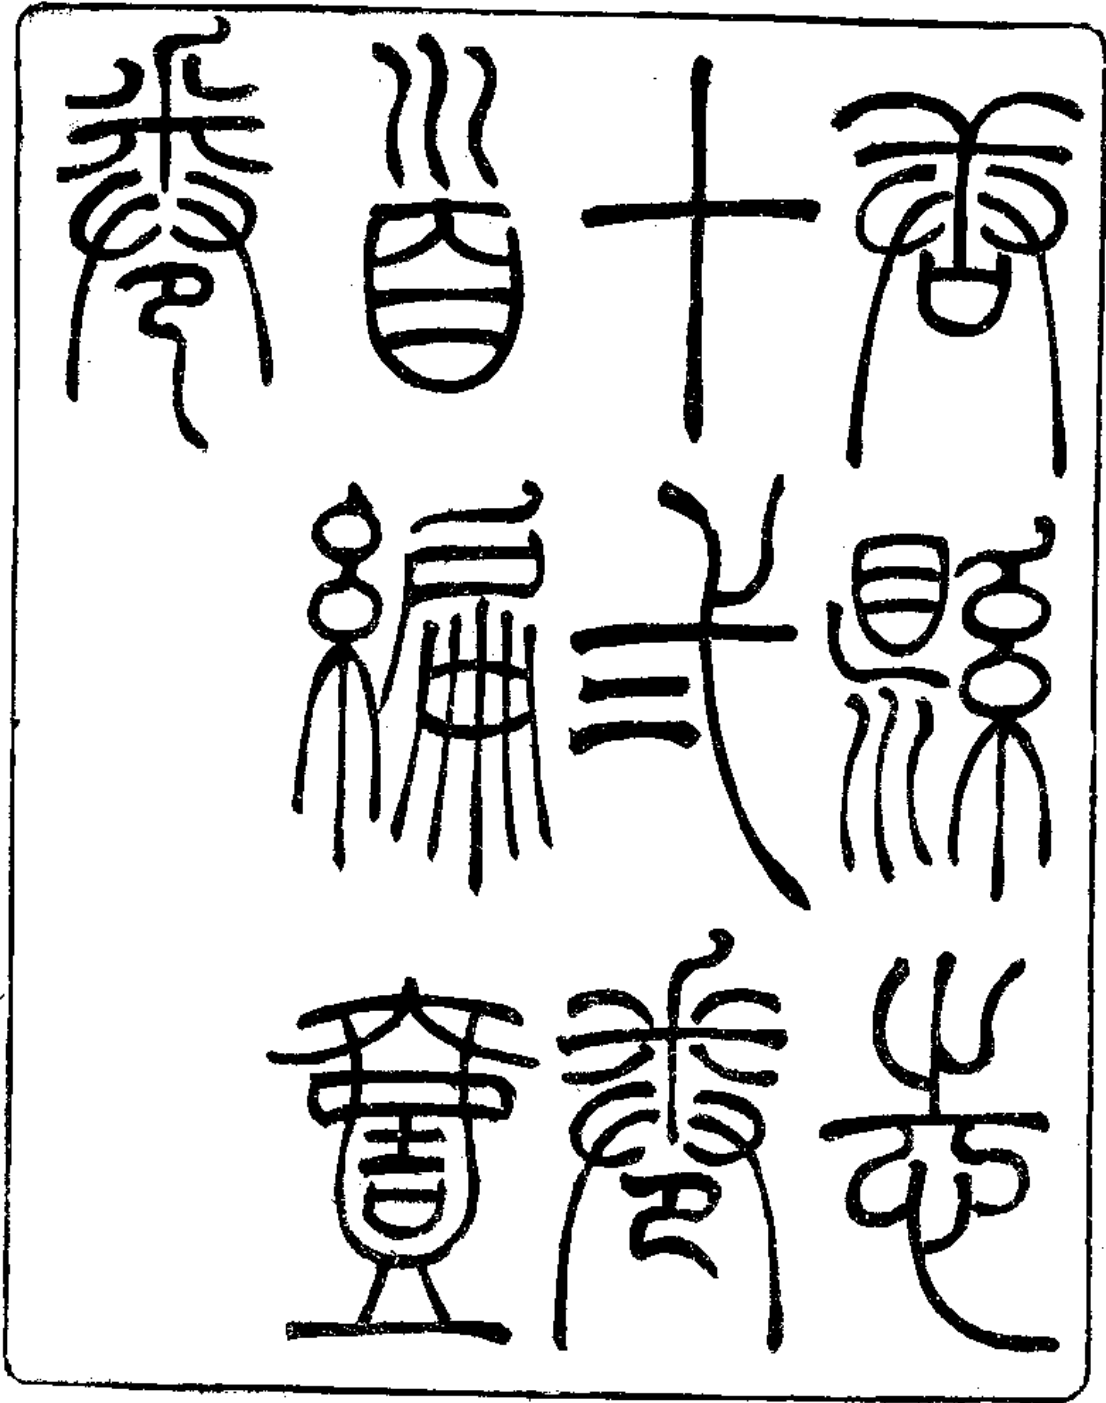 唐縣志
十弍卷
首編壹
卷